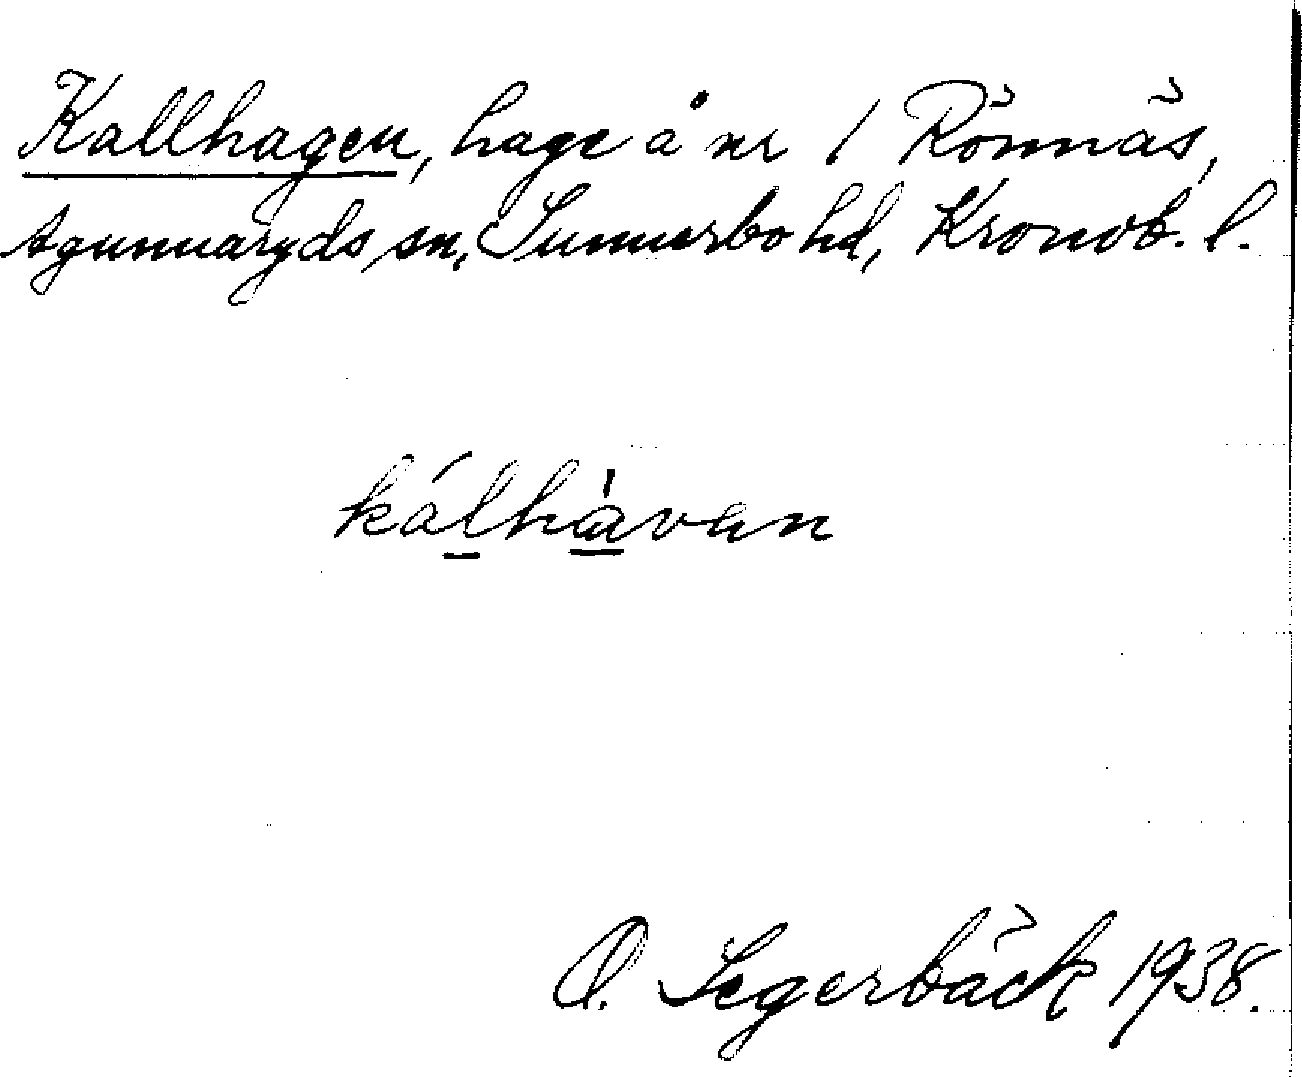 Kallhagen, hage å nr 1 Rönnäs,
Agunnaryds sn, Sunnerbo hd, Kronob. l.
kálhàvan
O. Segerbäck 1938.